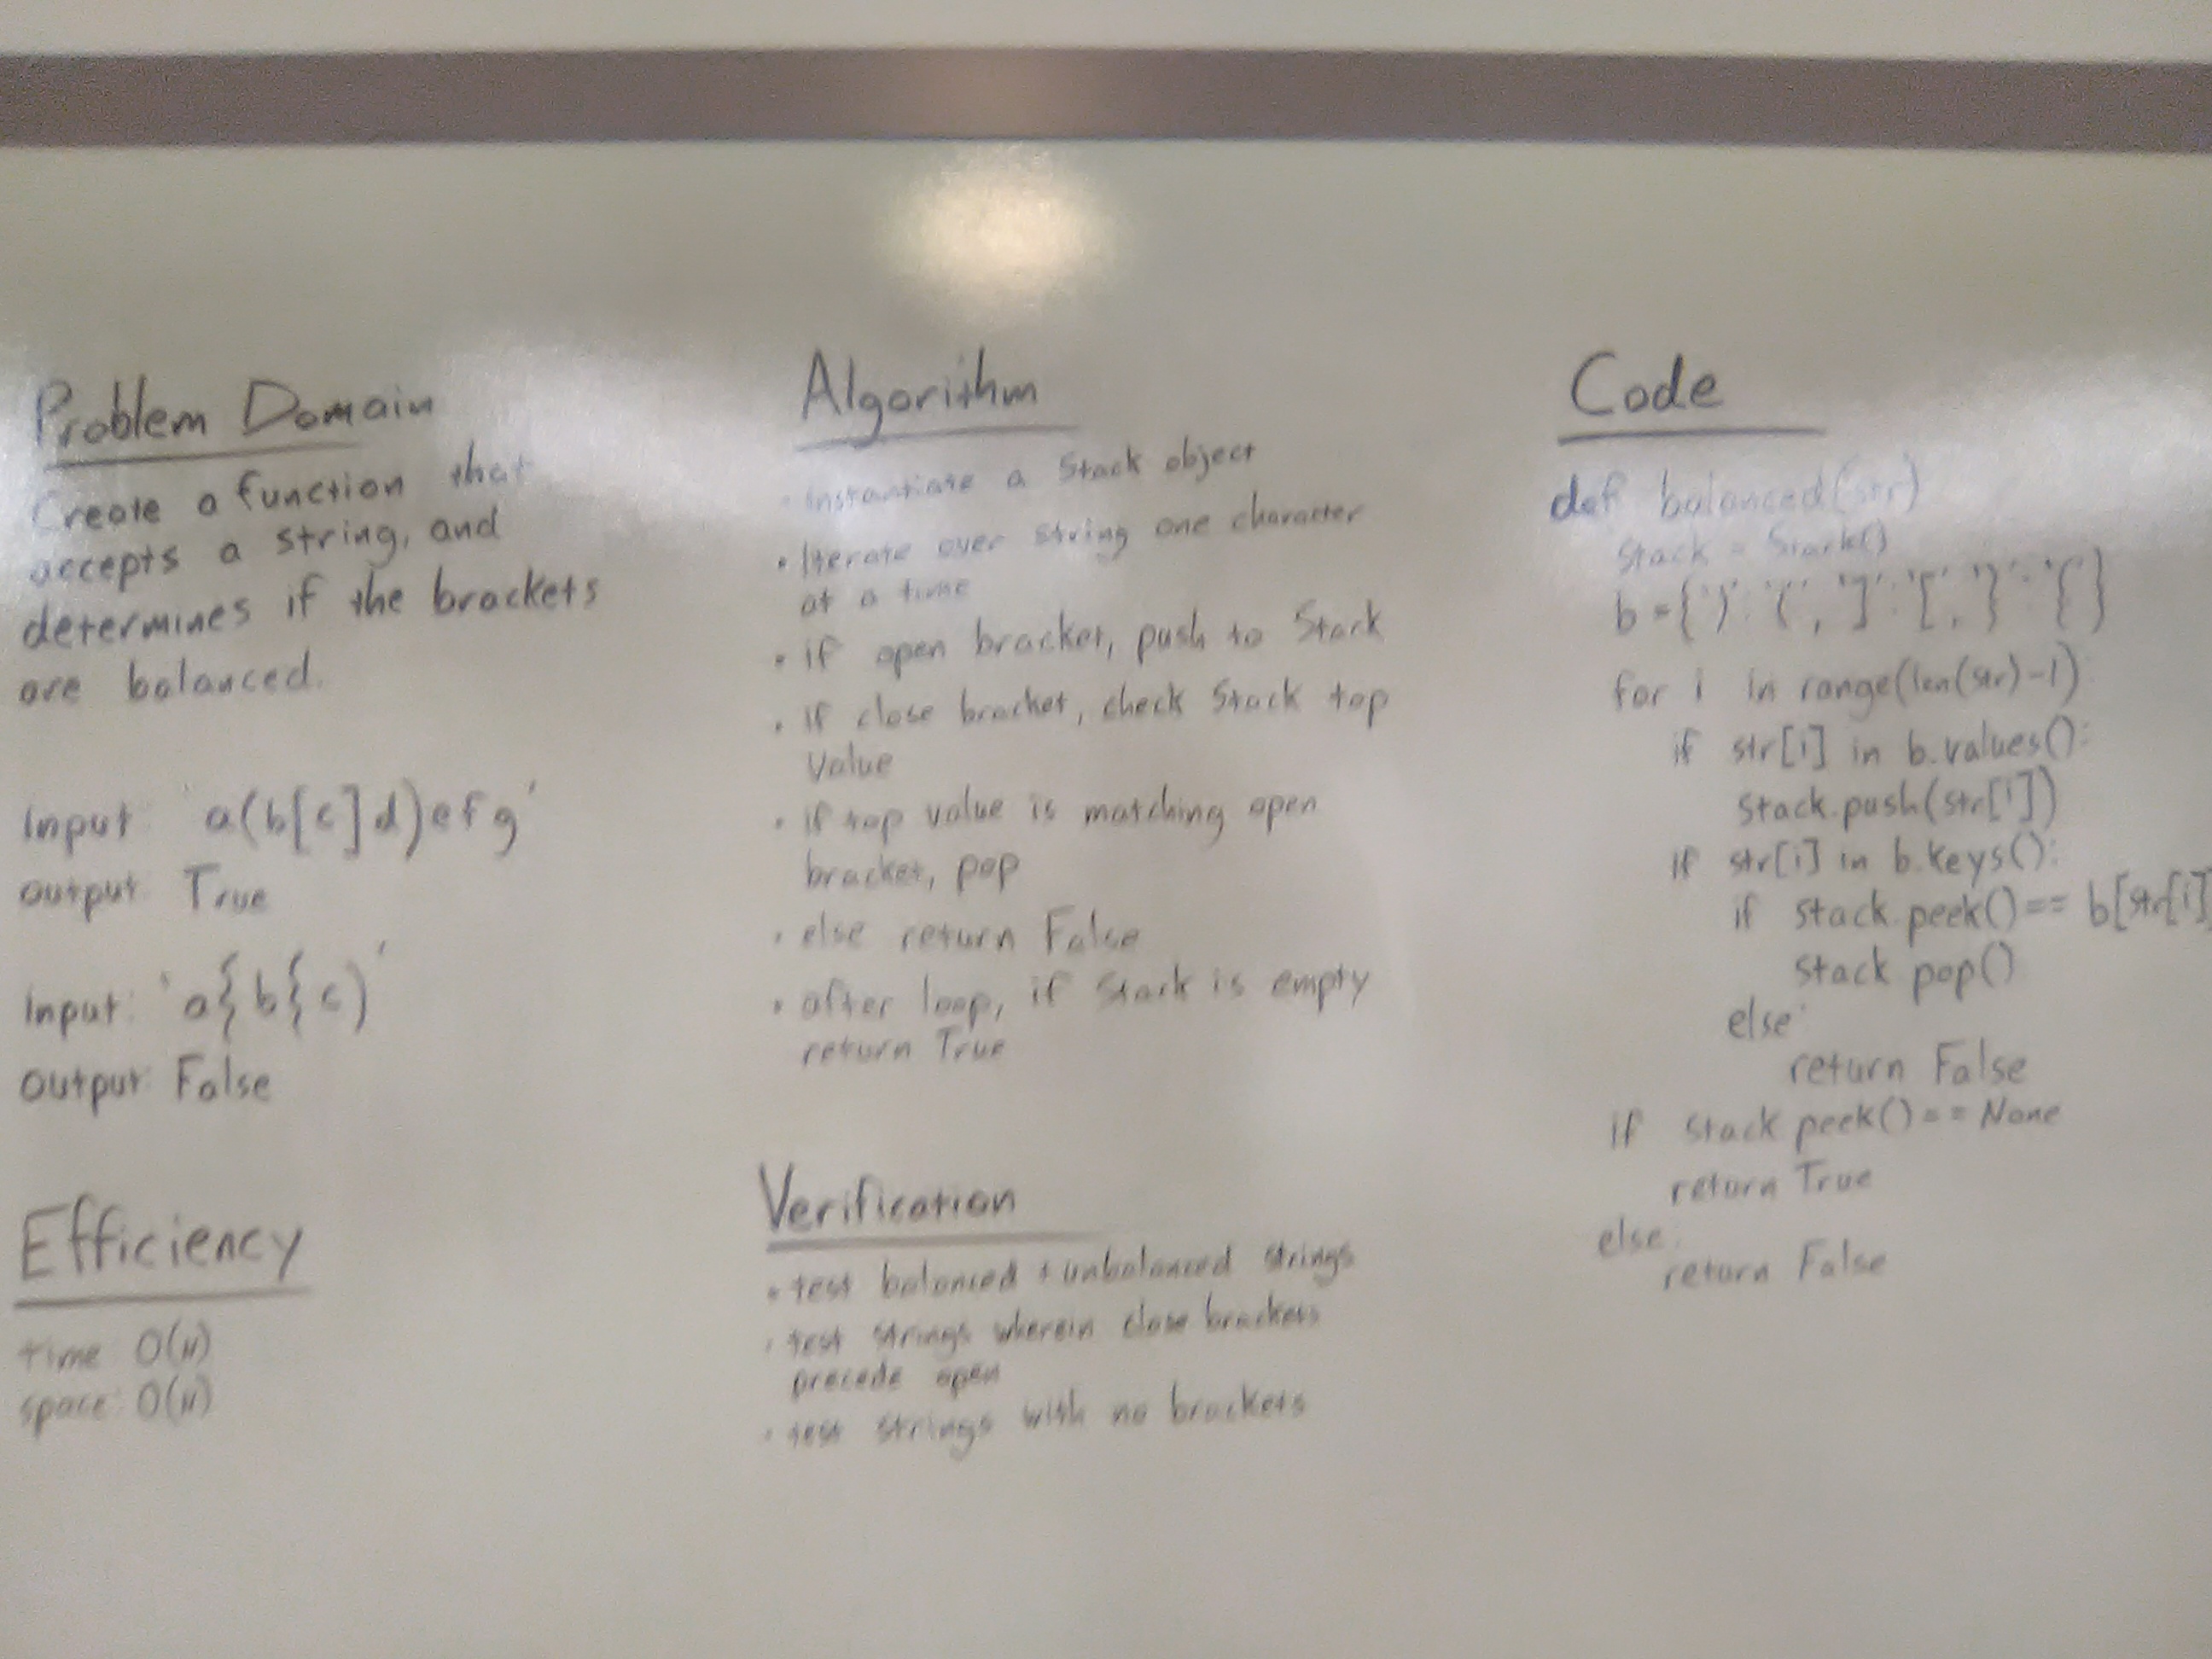 Problem Domain
Create a function that
accepts a string, and
determines if the brackets
are balanced.
Input: 'a(b[c]d)efg'
output: True
Input: 'a{b{c)'
output: False
Efficiency
time: O(n)
space: O(n)
Algorithm
• Instantiate a Stack object
• Iterate over string one character
at a time
• if open bracket, push to Stack
• if close bracket, check Stack top
value
• if top value is matching open
bracket, pop
• else return False
• after loop, if Stack is empty
return True
Verification
• test balanced + unbalanced strings
• test strings wherein close brackets
precede open
• test strings with no brackets
Code
def balanced(str)
stack = Stack()
b = {')':'(', ']':'[', '}':'{'}
for i in range(len(str)-1):
if str[i] in b.values():
stack.push(str[i])
if str[i] in b.keys():
if stack.peek() == b[str[i]
stack.pop()
else:
return False
if stack.peek() == None
return True
else:
return False